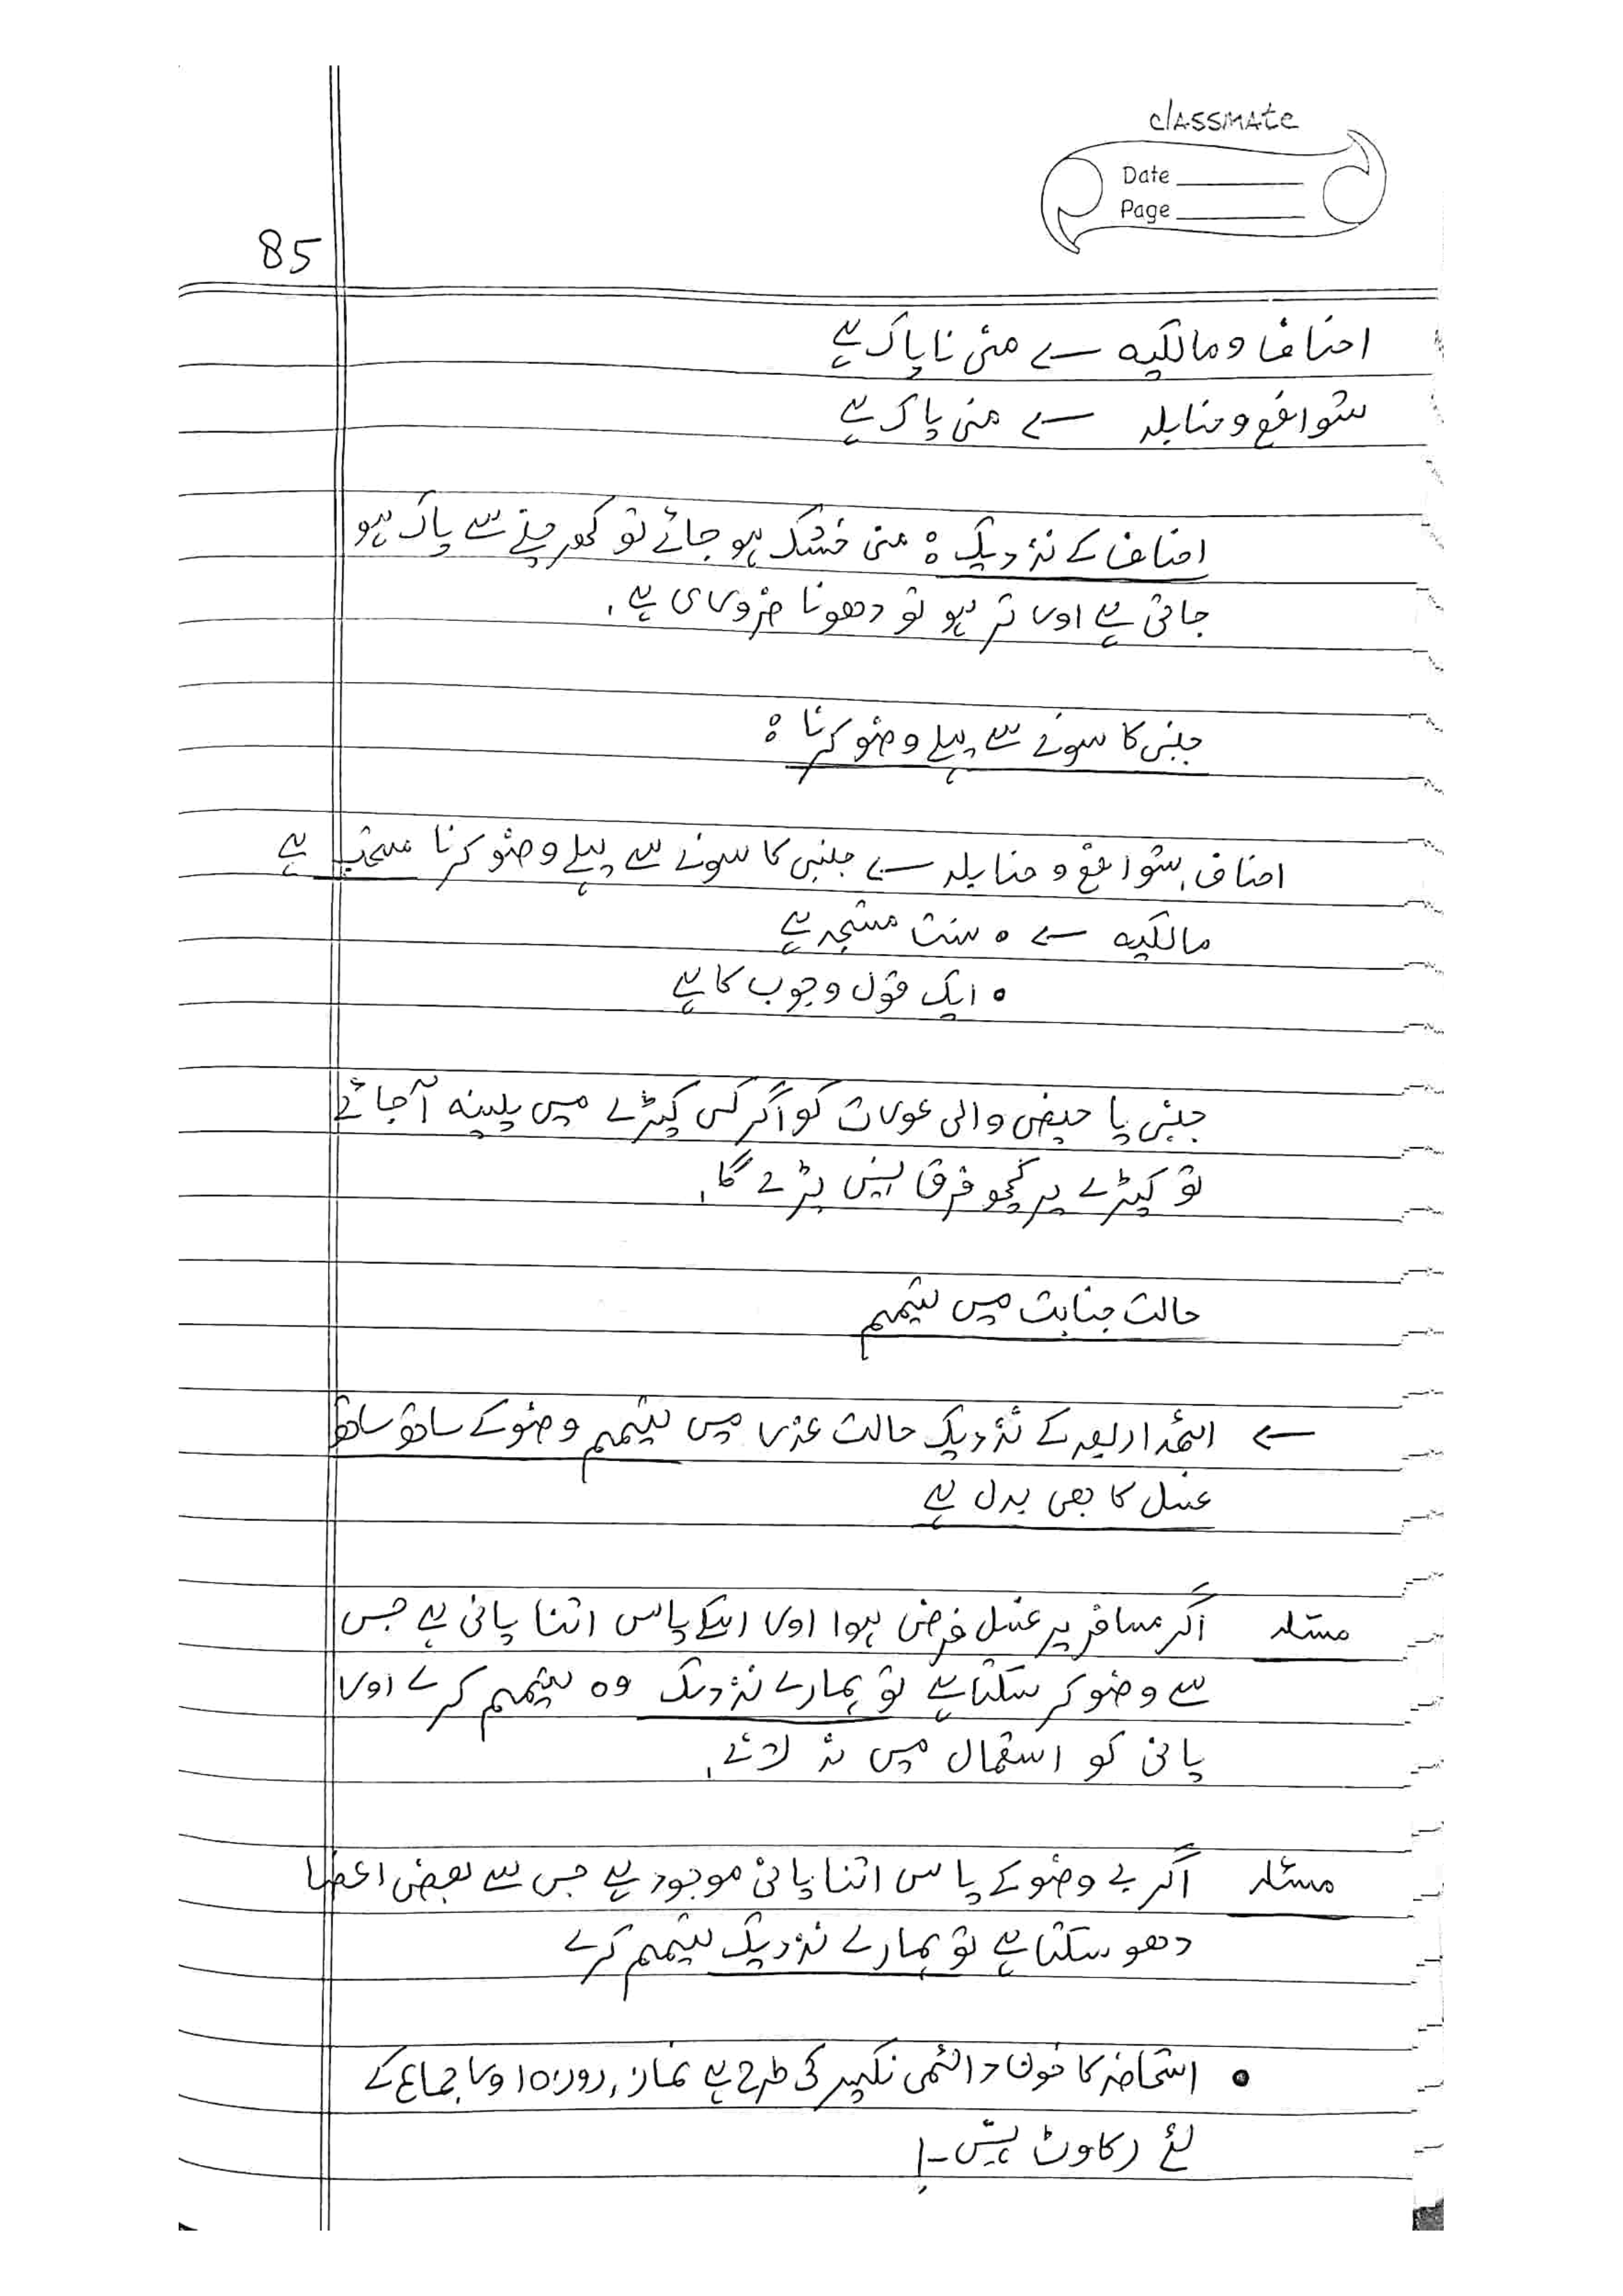 classmate
Date
Page
85
احناف و مالکیہ ← منی ناپاک ہے
شوافع و حنابلہ ← منی پاک ہے
احناف کے نزدیک : منی خشک ہو جائے تو کھرچنے سے پاک ہو
جاتی ہے اور تر ہو تو دھونا ضروری ہے۔
جنبی کا سونے سے پہلے وضو کرنا :
احناف، شوافع و حنابلہ ← جنبی کا سونے سے پہلے وضو کرنا مستحب ہے
مالکیہ ← • سنت مستحبہ ہے
• ایک قول وجوب کا ہے
جنبی یا حیض والی عورت کو اگر کسی کپڑے میں پسینہ آجائے
تو کپڑے پر کچھ فرق نہیں پڑے گا۔
حالت جنابت میں تیمم
← ائمہ اربعہ کے نزدیک حالت عذر میں تیمم وضو کے ساتھ ساتھ
غسل کا بھی بدل ہے
مسئلہ اگر مسافر پر غسل فرض ہوا اور اسکے پاس اتنا پانی ہے جس
سے وضو کر سکتا ہے تو ہمارے نزدیک وہ تیمم کرے اور
پانی کو استعمال میں نہ لائے۔
مسئلہ اگر بے وضو کے پاس اتنا پانی موجود ہے جس سے بعض اعضا
دھو سکتا ہے تو ہمارے نزدیک تیمم کرے
• استحاضہ کا خون دائمی نکسیر کی طرح ہے نماز، روزہ اور جماع کے
لئے رکاوٹ نہیں۔